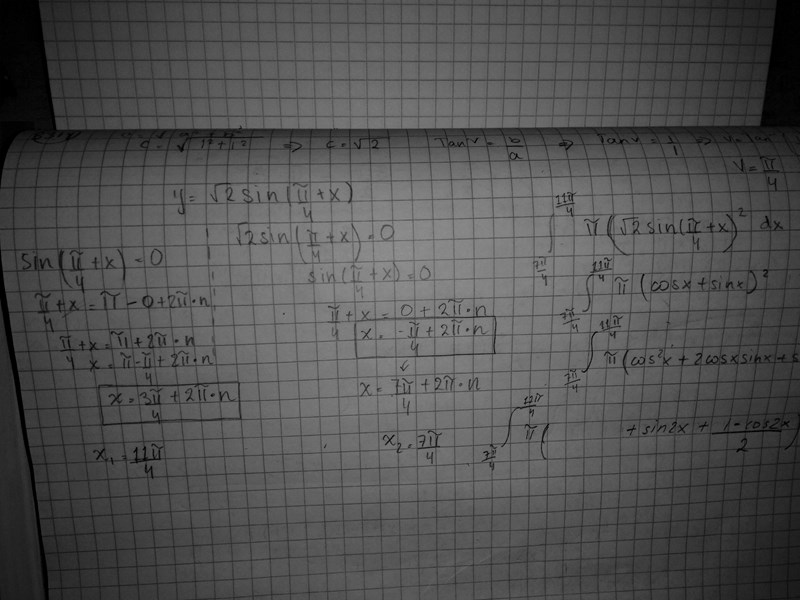 c = √1²+1² => c = √2 Tan v = b/a => Tan v = 1/1 =>
v = π/4
y = √2 sin(π/4 + x)
√2 sin(π/4 + x) = 0
sin(π/4 + x) = 0
sin(π/4 + x) = 0
π/4 + x = π - 0 + 2π·n
π/4 + x = π + 2π·n
x = π - π/4 + 2π·n
x = 3π/4 + 2π·n
x₁ = 11π/4
π/4 + x = 0 + 2π·n
x = -π/4 + 2π·n
↓
x = 7π/4 + 2π·n
x₂ = 7π/4
∫_{7π/4}^{11π/4} π(√2 sin(π/4 + x))² dx
∫_{7π/4}^{11π/4} π(cosx + sinx)²
∫_{7π/4}^{11π/4} π(cos²x + 2cosx sinx + s
∫_{7π/4}^{11π/4} π( + sin2x + 1-cos2x/2)